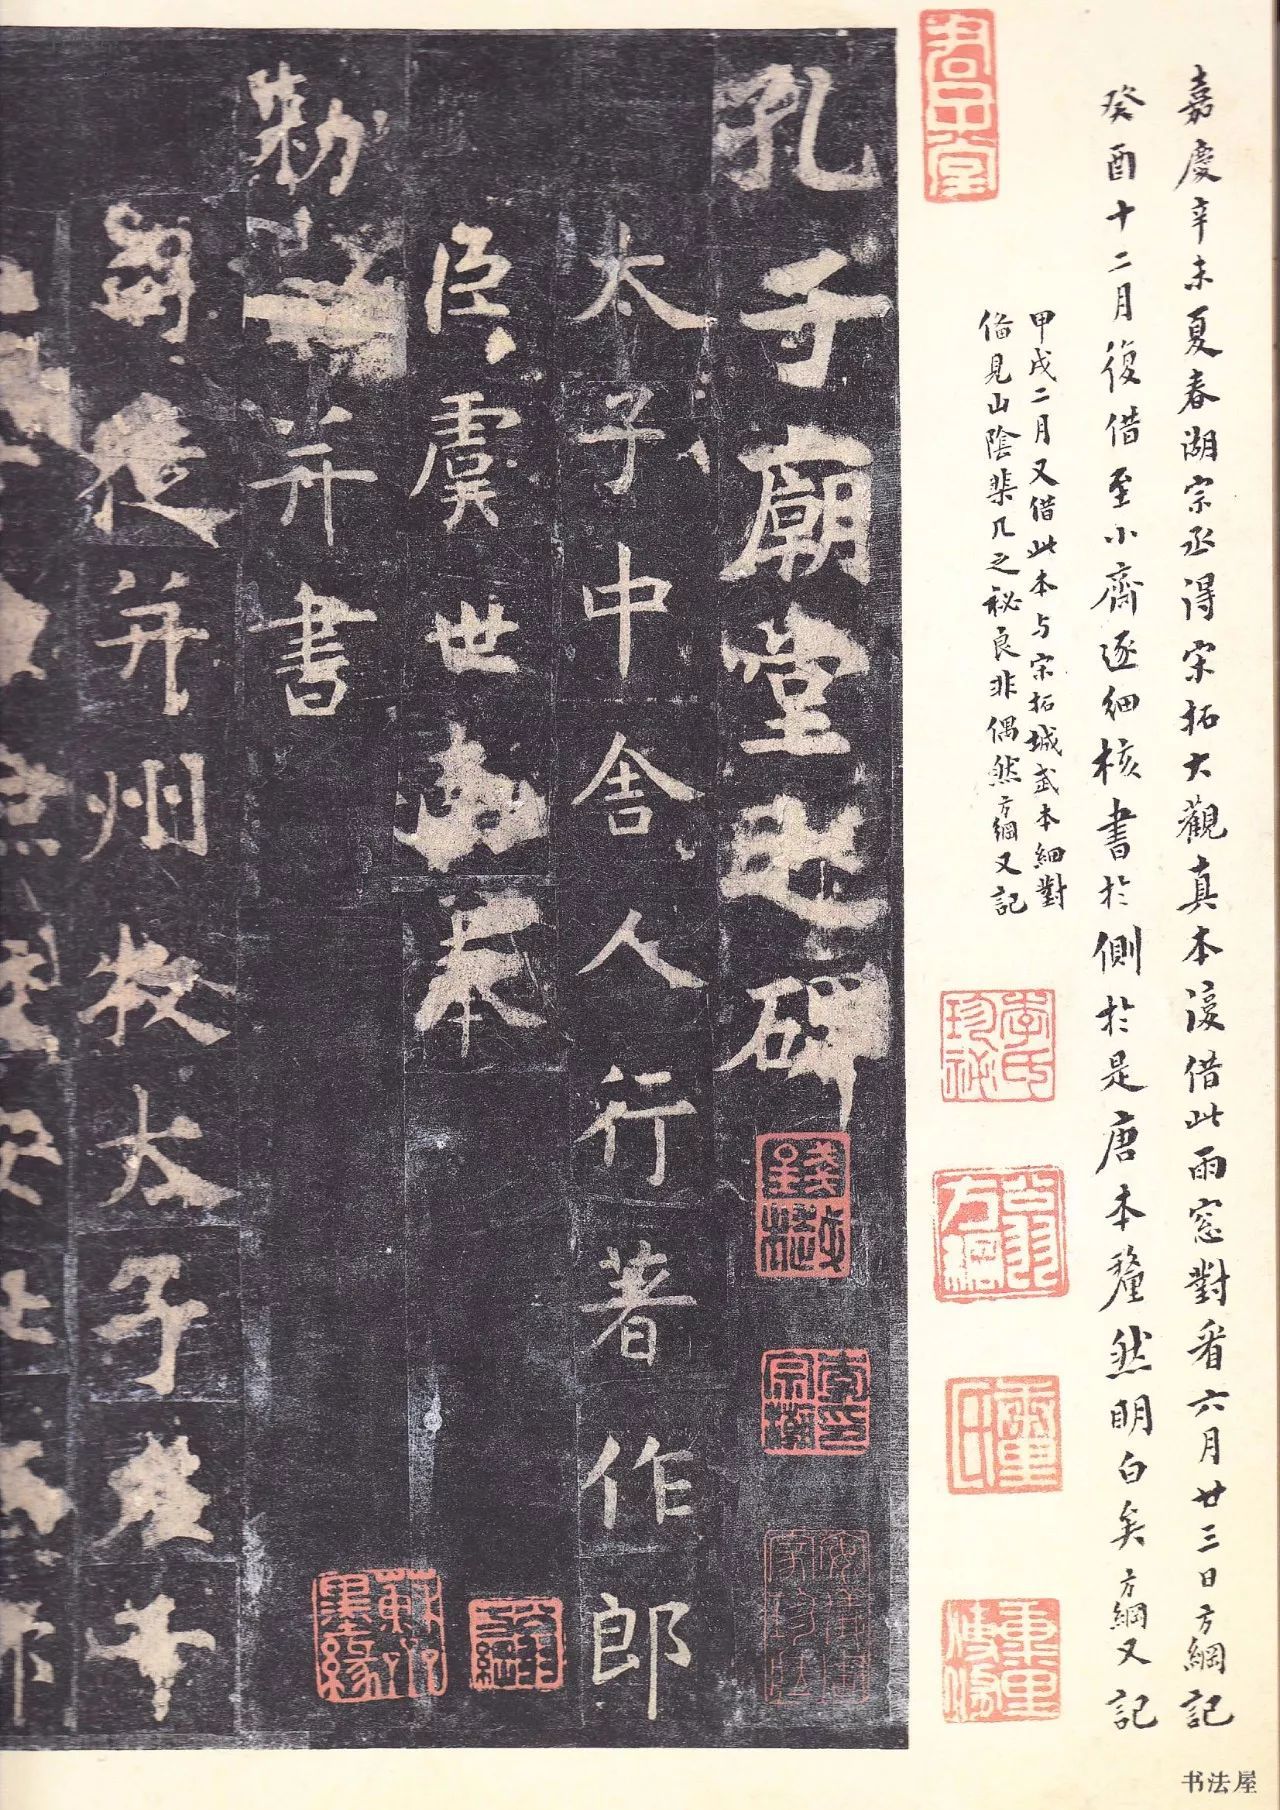 嘉慶辛未夏春湖宗丞得宋拓大觀真本湲借此雨窓對看六月廿三日方綱記
癸酉十二月復借至小齋逐細核書於側於是唐本釐然明白矣方綱又記
甲戌二月又借此本与宋拓城武本細對
俻見山陰棐几之祕良非偶然方綱又記
孔子廟堂之碑
太子中舍人行著作郎
臣虞世南奉
勅
并書
司徒并州牧太子左千
書法屋